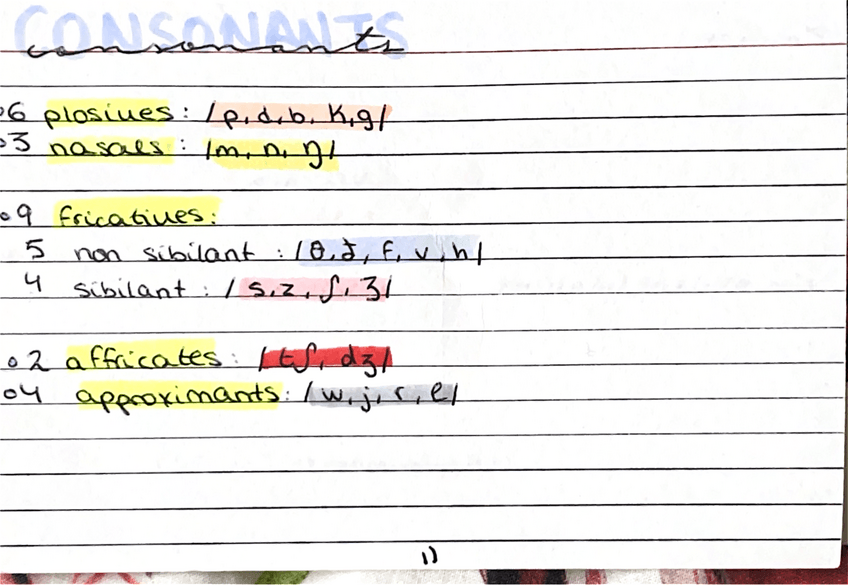 CONSONANTS
consonants
•6 plosives: /p, d, b, k, g/
•3 nasals: /m, n, ŋ/
•9 fricatives:
5 non sibilant: /θ, ð, f, v, h/
4 sibilant: /s, z, ʃ, ʒ/
•2 affricates: /tʃ, dʒ/
•4 approximants: /w, j, r, l/
1)